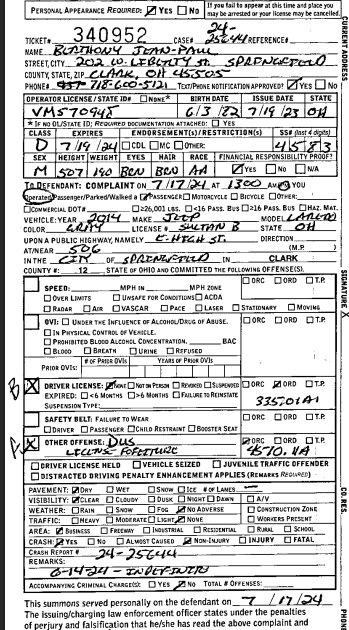 PERSONAL APPEARANCE REQUIRED: ☑ YES ☐ NO
If you fail to appear at this time and place you may be arrested or your license may be cancelled.
TICKET# 340952 CASE# 24-25644 REFERENCE#
NAME JEAN-PAUL
STREET, CITY 202 W. LIBERTY ST. SPRINGFIELD
COUNTY, STATE, ZIP CLARK, OH 45505
PHONE# 718-600-5121 TEXT/PHONE NOTIFICATION APPROVED? ☑ YES ☐ NO
OPERATOR LICENSE / STATE ID ☐ NONE* BIRTH DATE ISSUE DATE STATE
VM570948 6/3/82 7/19/23 OH
* IF NO OL/STATE ID; REQUIRED DOCUMENTATION ATTACHED: ☐ YES
CLASS EXPIRES ENDORSEMENT(S)/RESTRICTION(S) SS# (last 4 digits)
D 7/19/24 ☐ CDL ☐ MC ☐ OTHER: 4583
SEX HEIGHT WEIGHT EYES HAIR RACE FINANCIAL RESPONSIBILITY PROOF?
M 507 190 BRN BRN AA ☑ YES ☐ NO ☐ N/A
TO DEFENDANT: COMPLAINT ON 7/17/24 AT 1300 AM/PM YOU
Operated/Passenger/Parked/Walked a ☑ PASSENGER ☐ MOTORCYCLE ☐ BICYCLE ☐ OTHER:
☐ COMMERCIAL DOT# ☐ ≥26,001 LBS. ☐ <16 PASS. BUS ☐ ≥16 PASS. BUS ☐ HAZ. MAT.
VEHICLE: YEAR 2014 MAKE JEEP MODEL LAREDO
COLOR GRAY LICENSE # STATE OH
UPON A PUBLIC HIGHWAY, NAMELY E. HIGH ST. DIRECTION
AT/NEAR 506 (M.P. )
IN THE CITY OF SPRINGFIELD IN CLARK
COUNTY #: 12 STATE OF OHIO AND COMMITTED THE FOLLOWING OFFENSE(S).
☐ SPEED: MPH IN MPH ZONE ☐ ORC ☐ ORD ☐ T.P.
☐ OVER LIMITS ☐ UNSAFE FOR CONDITIONS ☐ ACDA
☐ RADAR ☐ AIR ☐ VASCAR ☐ PACE ☐ LASER ☐ STATIONARY ☐ MOVING
OVI: ☐ UNDER THE INFLUENCE OF ALCOHOL/DRUG OF ABUSE. ☐ ORC ☐ ORD ☐ T.P.
☐ IN PHYSICAL CONTROL OF VEHICLE.
☐ PROHIBITED BLOOD ALCOHOL CONCENTRATION. BAC
☐ BLOOD ☐ BREATH ☐ URINE ☐ REFUSED
# OF PRIOR OVIS YEARS OF PRIOR OVIS
PRIOR OVIS:
B ☒ DRIVER LICENSE: ☑ NONE ☐ NOT ON PERSON ☐ REVOKED ☐ SUSPENDED ☐ ORC ☑ ORD ☐ T.P.
EXPIRED: ☐ <6 MONTHS ☐ >6 MONTHS ☐ FAILURE TO REINSTATE 335.01A1
SUSPENSION TYPE:
SAFETY BELT: FAILURE TO WEAR ☐ ORC ☐ ORD ☐ T.P.
☐ DRIVER ☐ PASSENGER ☐ CHILD RESTRAINT ☐ BOOSTER SEAT
A ☒ OTHER OFFENSE: DUS ☑ ORC ☐ ORD ☐ T.P.
LICENSE FORFEITURE 4510.11A
☐ DRIVER LICENSE HELD ☐ VEHICLE SEIZED ☐ JUVENILE TRAFFIC OFFENDER
☐ DISTRACTED DRIVING PENALTY ENHANCEMENT APPLIES (REMARKS REQUIRED)
PAVEMENT: ☑ DRY ☐ WET ☐ SNOW ☐ ICE # OF LANES
VISIBILITY: ☑ CLEAR ☐ CLOUDY ☐ DUSK ☐ NIGHT ☐ DAWN ☐ A/V
WEATHER: ☐ RAIN ☐ SNOW ☐ FOG ☑ NO ADVERSE ☐ CONSTRUCTION ZONE
TRAFFIC: ☐ HEAVY ☐ MODERATE ☐ LIGHT ☑ NONE ☐ WORKERS PRESENT
AREA: ☑ BUSINESS ☐ FREEWAY ☐ INDUSTRIAL ☐ RESIDENTIAL ☐ RURAL ☐ SCHOOL
CRASH: ☑ YES ☐ NO ☐ ALMOST CAUSED ☑ NON-INJURY ☐ INJURY ☐ FATAL
CRASH REPORT # 24-25644
REMARKS:
6-14-24 - INDEFINITE
ACCOMPANYING CRIMINAL CHARGE(S) ☐ YES ☑ NO TOTAL # OFFENSES:
This summons served personally on the defendant on 7/17/24
The issuing/charging law enforcement officer states under the penalties
of perjury and falsification that he/she has read the above complaint and
CURRENT ADDRESS
SIGNATURE X
CO. RES.
PHONE